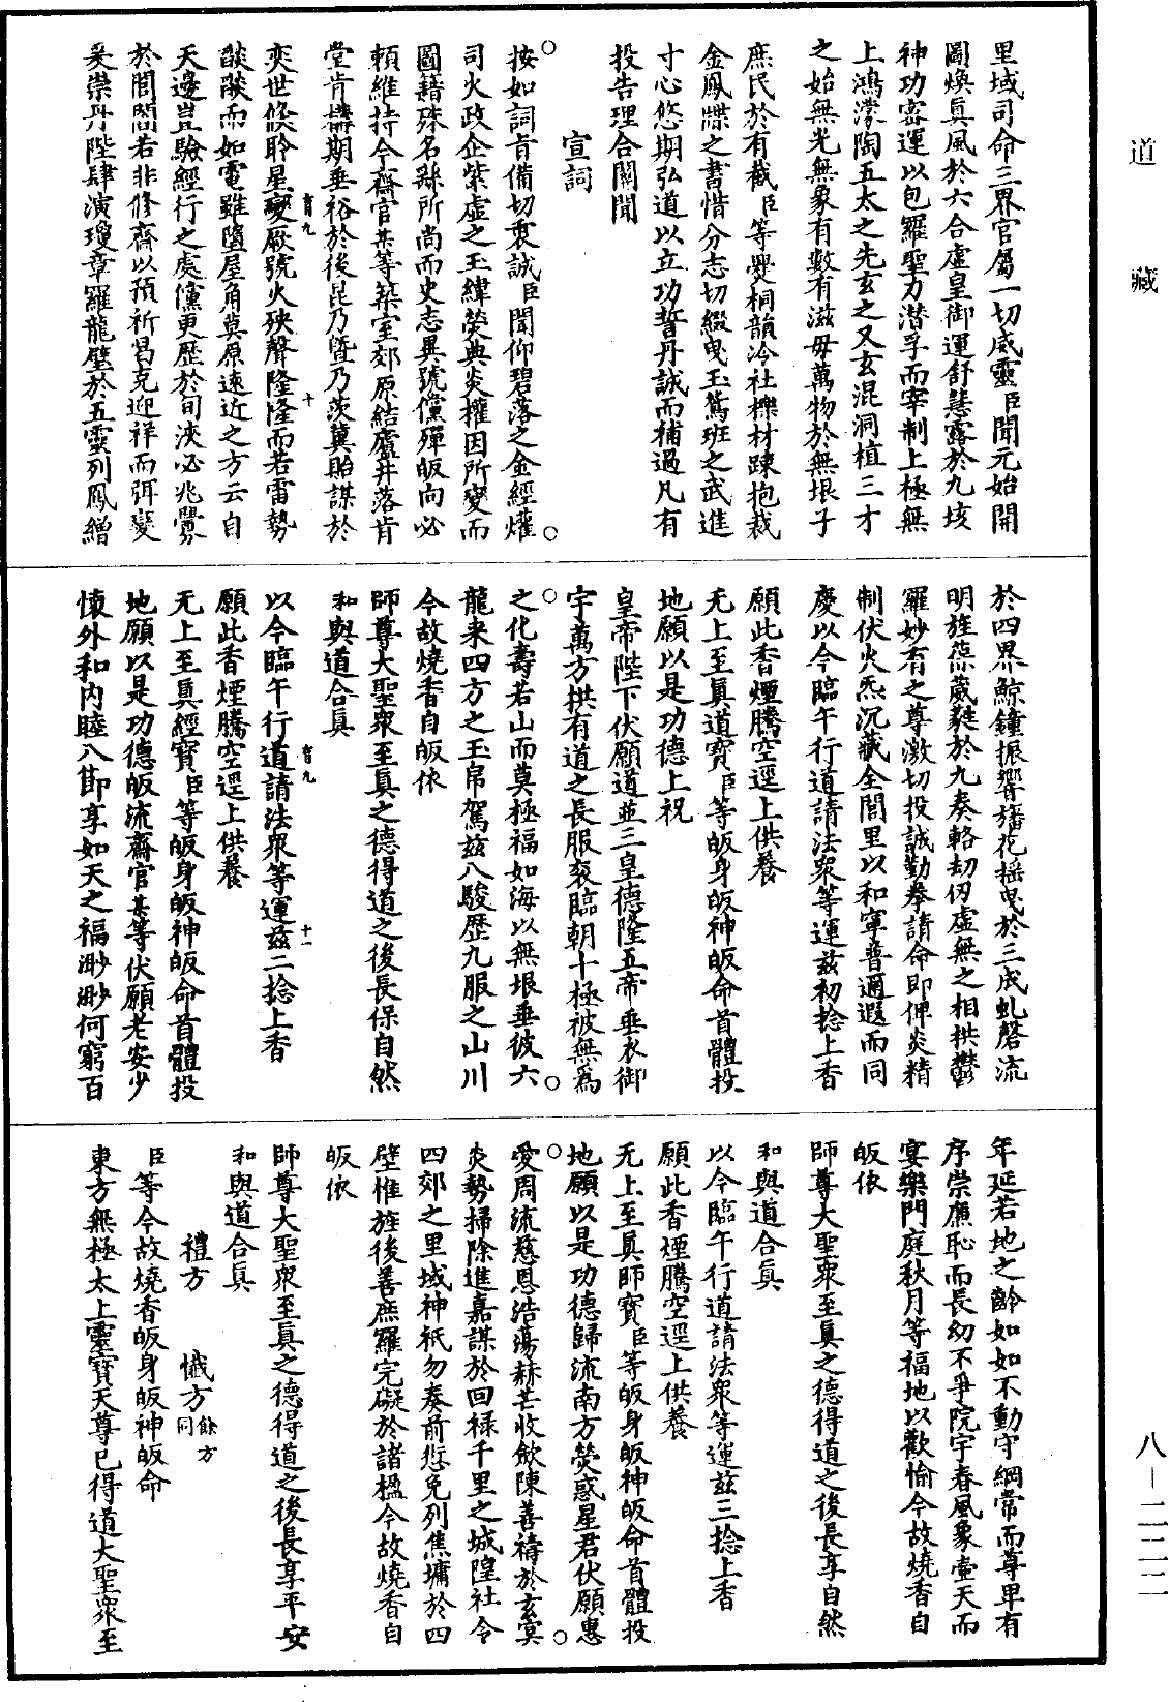 道藏
里域司命三界官屬一切威靈臣聞元始開
圖煥真風於六合虛皇御運舒慧露於九垓
神功密運以包羅聖力潛孚而宰制上極無
上鴻濛陶五太之先玄之又玄混洞植三才
之始無光無象有數有滋毋萬物於無垠子
庶民於有截臣等爨桐韻冷社櫟材踈抱裁
金鳳牒之書惜分志切綴曳玉鵷班之武進
寸心悠期弘道以立功誓丹誠而補過凡有
投告理合關聞
宣詞
按如詞旨備切衷誠臣聞仰碧落之金經爟
司火政企紫虛之玉緯熒典炎權因所變而
圖籍殊名繇所尚而史志異號儻殫皈向必
賴維持今齋官某等築室郊原結廬井落肯
堂肯搆期垂裕於後昆乃暨乃茨冀貽謀於
奕世倐聆星變厥號火殃聲隆隆而若雷勢
燄燄而如電雖墮屋角莫原速近之方云自
天邊豈驗經行之處儻更歷於旬浹必兆釁
於閭閻若非修齋以預祈曷克迎祥而弭變
爰崇丹陛肆演瓊章羅龍壁於五靈列鳳繒
育九
十
於四界鯨鐘振響旛花搖曳於三成虬磬流
明旌葆葳蕤於九奏輅劫仞虛無之相拱鬱
羅妙有之尊激切投誠勤拳請命即俾炎精
制伏火炁沉藏全閭里以和寧普邇遐而同
慶以今臨午行道請法眾等運茲初捻上香
願此香煙騰空逕上供養
无上至真道寶臣等皈身皈神皈命首體投
地願以是功德上祝
皇帝陛下伏願道並三皇德隆五帝垂衣御
宇萬方拱有道之長服袞臨朝十極被無為
之化壽若山而莫極福如海以無垠垂彼六
龍来四方之玉帛駕茲八駿歷九服之山川
今故燒香自皈依
師尊大聖眾至真之德得道之後長保自然
和與道合真
以今臨午行道請法眾等運茲二捻上香
願此香煙騰空逕上供養
无上至真經寶臣等皈身皈神皈命首體投
地願以是功德皈流齋官某等伏願老安少
懷外和內睦八節享如天之福渺渺何窮百
育九
十一
年延若地之齡如如不動守綱常而尊卑有
序崇廉恥而長幼不爭院宇春風象壼天而
宴樂門庭秋月等福地以歡愉今故燒香自
皈依
師尊大聖眾至真之德得道之後長享自然
和與道合真
以今臨午行道請法眾等運茲三捻上香
願此香煙騰空逕上供養
无上至真師寶臣等皈身皈神皈命首體投
地願以是功德歸流南方熒惑星君伏願惠
愛周流慈恩浩蕩赫芒收斂陳善禱於玄冥
炎勢掃除進嘉謀於回祿千里之城隍社令
四郊之里域神祇勿奏前愆免列焦墉於四
壁惟旌後善庶羅完礙於諸楹今故燒香自
皈依
師尊大聖眾至真之德得道之後長享平安
和與道合真
禮方　懺方餘方同
臣等今故燒香皈身皈神皈命
東方無極太上靈寶天尊已得道大聖眾至
八－二二二